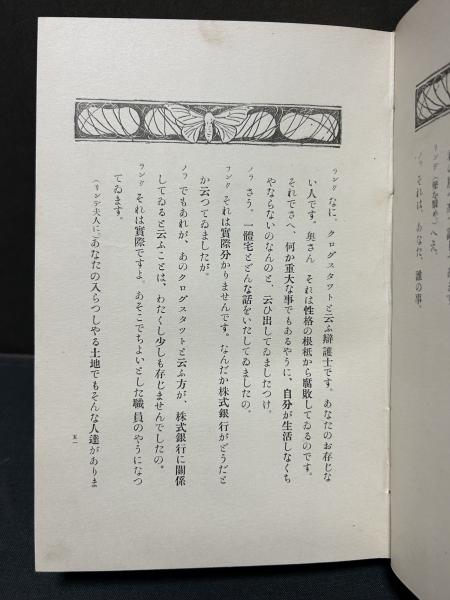 ランク なに、クログスタツトと云ふ辯護士です。あなたのお存じな
い人です。奥さん それは性格の根柢から腐敗してゐるのです。
それでさへ、何か重大な事でもあるやうに、自分が生活しなくち
やならないのなんのと、云ひ出してゐましたつけ。
ノラ さう。一體宅とどんな話をいたしてゐましたの。
ランク それは實際分かりませんです。なんだか株式銀行がどうだと
か云つてゐましたが。
ノラ でもあれが、あのクログスタツトと云ふ方が、株式銀行に關係
してゐると云ふことは、わたくし少しも存じませんでしたの。
ランク それは實際ですよ。あそこでちよいとした職員のやうになつ
てゐます。
(リンデ夫人に)あなたの入らつしやる土地でもそんな人達がありま
五一
それは、あなた、誰の事。